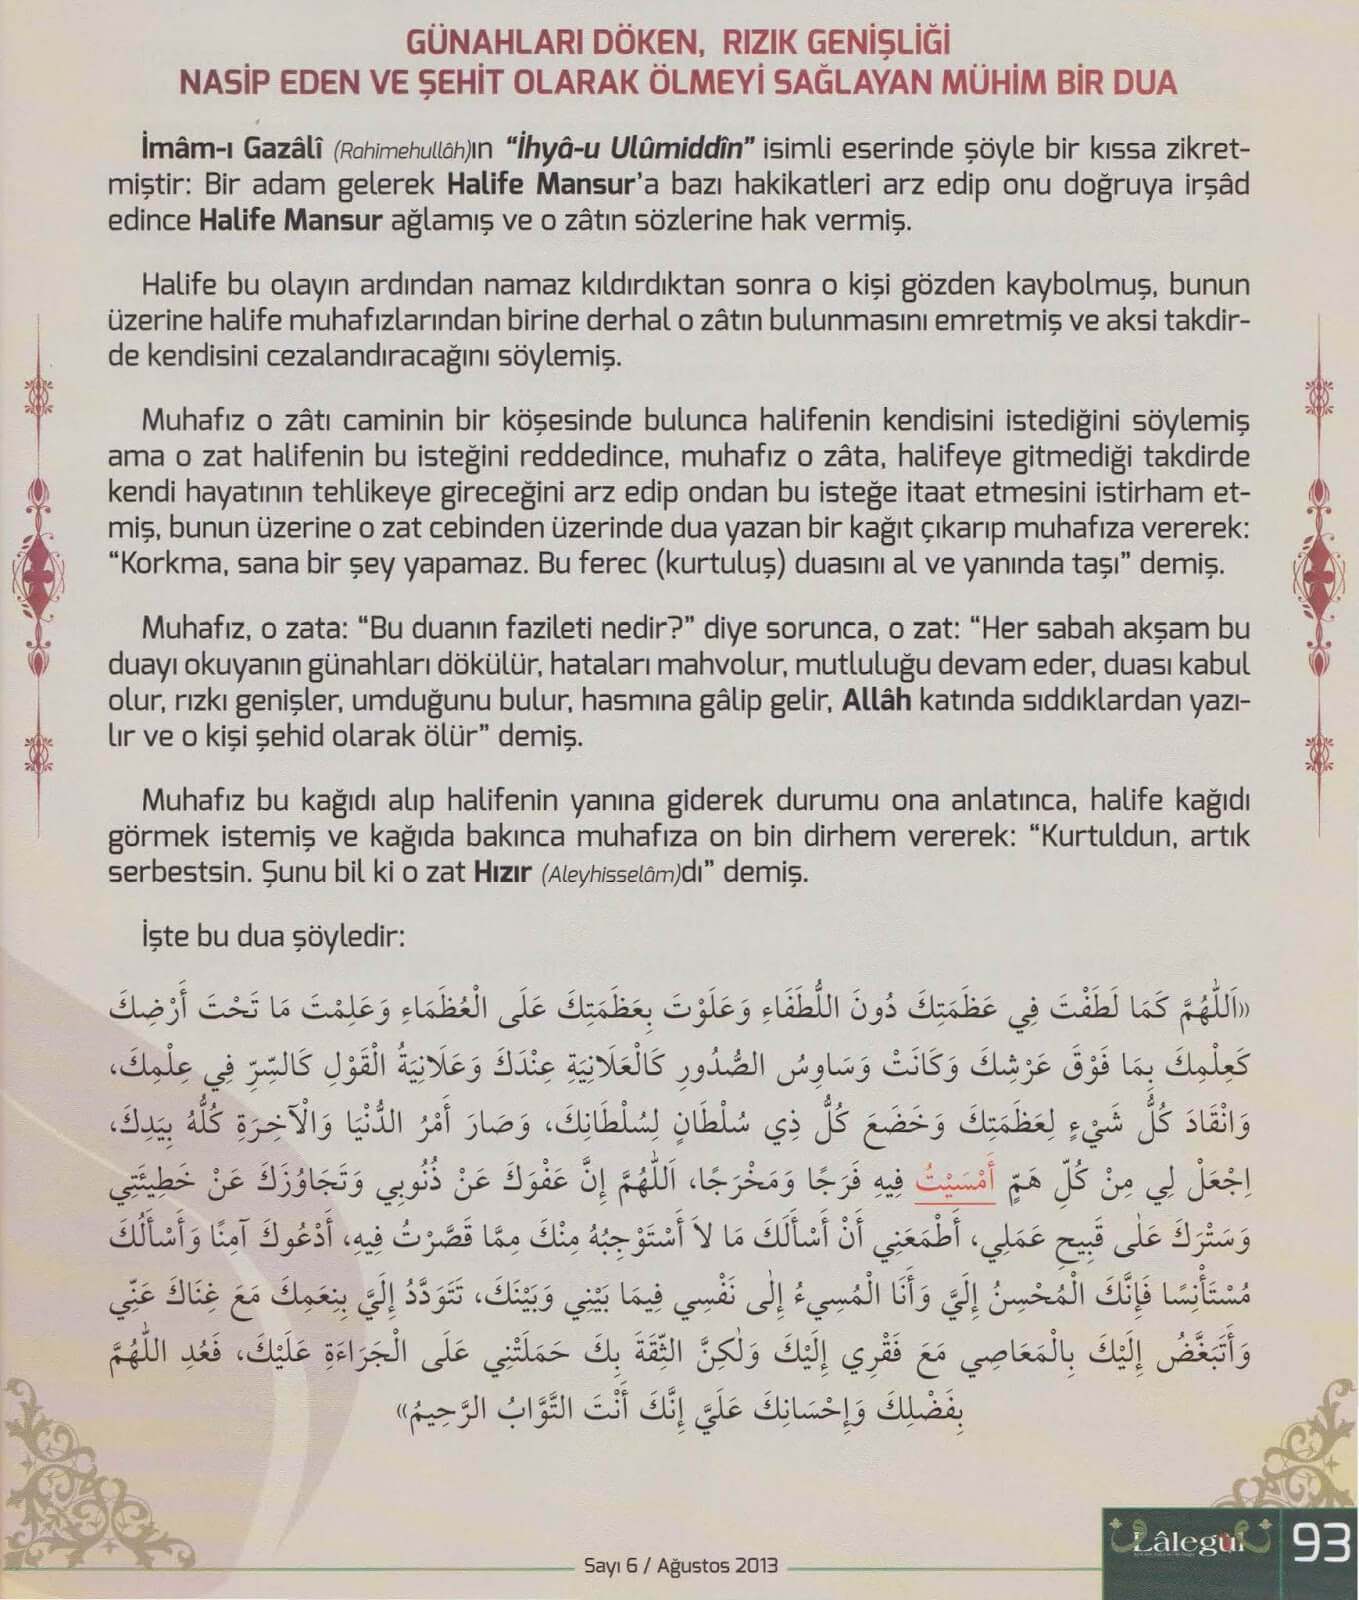 GÜNAHLARI DÖKEN, RIZIK GENİŞLİĞİ
NASİP EDEN VE ŞEHİT OLARAK ÖLMEYİ SAĞLAYAN MÜHİM BİR DUA
İmâm-ı Gazâlî (Rahimehullâh)ın “İhyâ-u Ulûmiddîn” isimli eserinde şöyle bir kıssa zikret-
miştir: Bir adam gelerek Halife Mansur’a bazı hakikatleri arz edip onu doğruya irşâd
edince Halife Mansur ağlamış ve o zâtın sözlerine hak vermiş.
Halife bu olayın ardından namaz kıldırdıktan sonra o kişi gözden kaybolmuş, bunun
üzerine halife muhafızlarından birine derhal o zâtın bulunmasını emretmiş ve aksi takdir-
de kendisini cezalandıracağını söylemiş.
Muhafız o zâtı caminin bir köşesinde bulunca halifenin kendisini istediğini söylemiş
ama o zat halifenin bu isteğini reddedince, muhafız o zâta, halifeye gitmediği takdirde
kendi hayatının tehlikeye gireceğini arz edip ondan bu isteğe itaat etmesini istirham et-
miş, bunun üzerine o zat cebinden üzerinde dua yazan bir kağıt çıkarıp muhafıza vererek:
“Korkma, sana bir şey yapamaz. Bu ferec (kurtuluş) duasını al ve yanında taşı” demiş.
Muhafız, o zata: “Bu duanın fazileti nedir?” diye sorunca, o zat: “Her sabah akşam bu
duayı okuyanın günahları dökülür, hataları mahvolur, mutluluğu devam eder, duası kabul
olur, rızkı genişler, umduğunu bulur, hasmına gâlip gelir, Allâh katında sıddıklardan yazı-
lır ve o kişi şehid olarak ölür” demiş.
Muhafız bu kağıdı alıp halifenin yanına giderek durumu ona anlatınca, halife kağıdı
görmek istemiş ve kağıda bakınca muhafıza on bin dirhem vererek: “Kurtuldun, artık
serbestsin. Şunu bil ki o zat Hızır (Aleyhisselâm)dı” demiş.
İşte bu dua şöyledir:
«اَللّٰهُمَّ كَمَا لَطَفْتَ فِي عَظَمَتِكَ دُونَ اللُّطَفَاءِ وَعَلَوْتَ بِعَظَمَتِكَ عَلَى الْعُظَمَاءِ وَعَلِمْتَ مَا تَحْتَ أَرْضِكَ
كَعِلْمِكَ بِمَا فَوْقَ عَرْشِكَ وَكَانَتْ وَسَاوِسُ الصُّدُورِ كَالْعَلَانِيَةِ عِنْدَكَ وَعَلَانِيَةُ الْقَوْلِ كَالسِّرِّ فِي عِلْمِكَ،
وَانْقَادَ كُلُّ شَيْءٍ لِعَظَمَتِكَ وَخَضَعَ كُلُّ ذِي سُلْطَانٍ لِسُلْطَانِكَ، وَصَارَ أَمْرُ الدُّنْيَا وَالْآخِرَةِ كُلُّهُ بِيَدِكَ،
اِجْعَلْ لِي مِنْ كُلِّ هَمٍّ أَمْسَيْتُ فِيهِ فَرَجًا وَمَخْرَجًا، اَللّٰهُمَّ إِنَّ عَفْوَكَ عَنْ ذُنُوبِي وَتَجَاوُزَكَ عَنْ خَطِيئَتِي
وَسَتْرَكَ عَلٰى قَبِيحِ عَمَلِي، أَطْمَعَنِي أَنْ أَسْأَلَكَ مَا لاَ أَسْتَوْجِبُهُ مِنْكَ مِمَّا قَصَّرْتُ فِيهِ، أَدْعُوكَ آمِنًا وَأَسْأَلُكَ
مُسْتَأْنِسًا فَإِنَّكَ الْمُحْسِنُ إِلَيَّ وَأَنَا الْمُسِيءُ إِلٰى نَفْسِي فِيمَا بَيْنِي وَبَيْنَكَ، تَتَوَدَّدُ إِلَيَّ بِنِعَمِكَ مَعَ غِنَاكَ عَنِّي
وَأَتَبَغَّضُ إِلَيْكَ بِالْمَعَاصِي مَعَ فَقْرِي إِلَيْكَ وَلٰكِنَّ الثِّقَةَ بِكَ حَمَلَتْنِي عَلَى الْجَرَاءَةِ عَلَيْكَ، فَعُدِ اللّٰهُمَّ
بِفَضْلِكَ وَإِحْسَانِكَ عَلَيَّ إِنَّكَ أَنْتَ التَّوَّابُ الرَّحِيمُ»
Sayı 6 / Ağustos 2013
Lâlegül
93